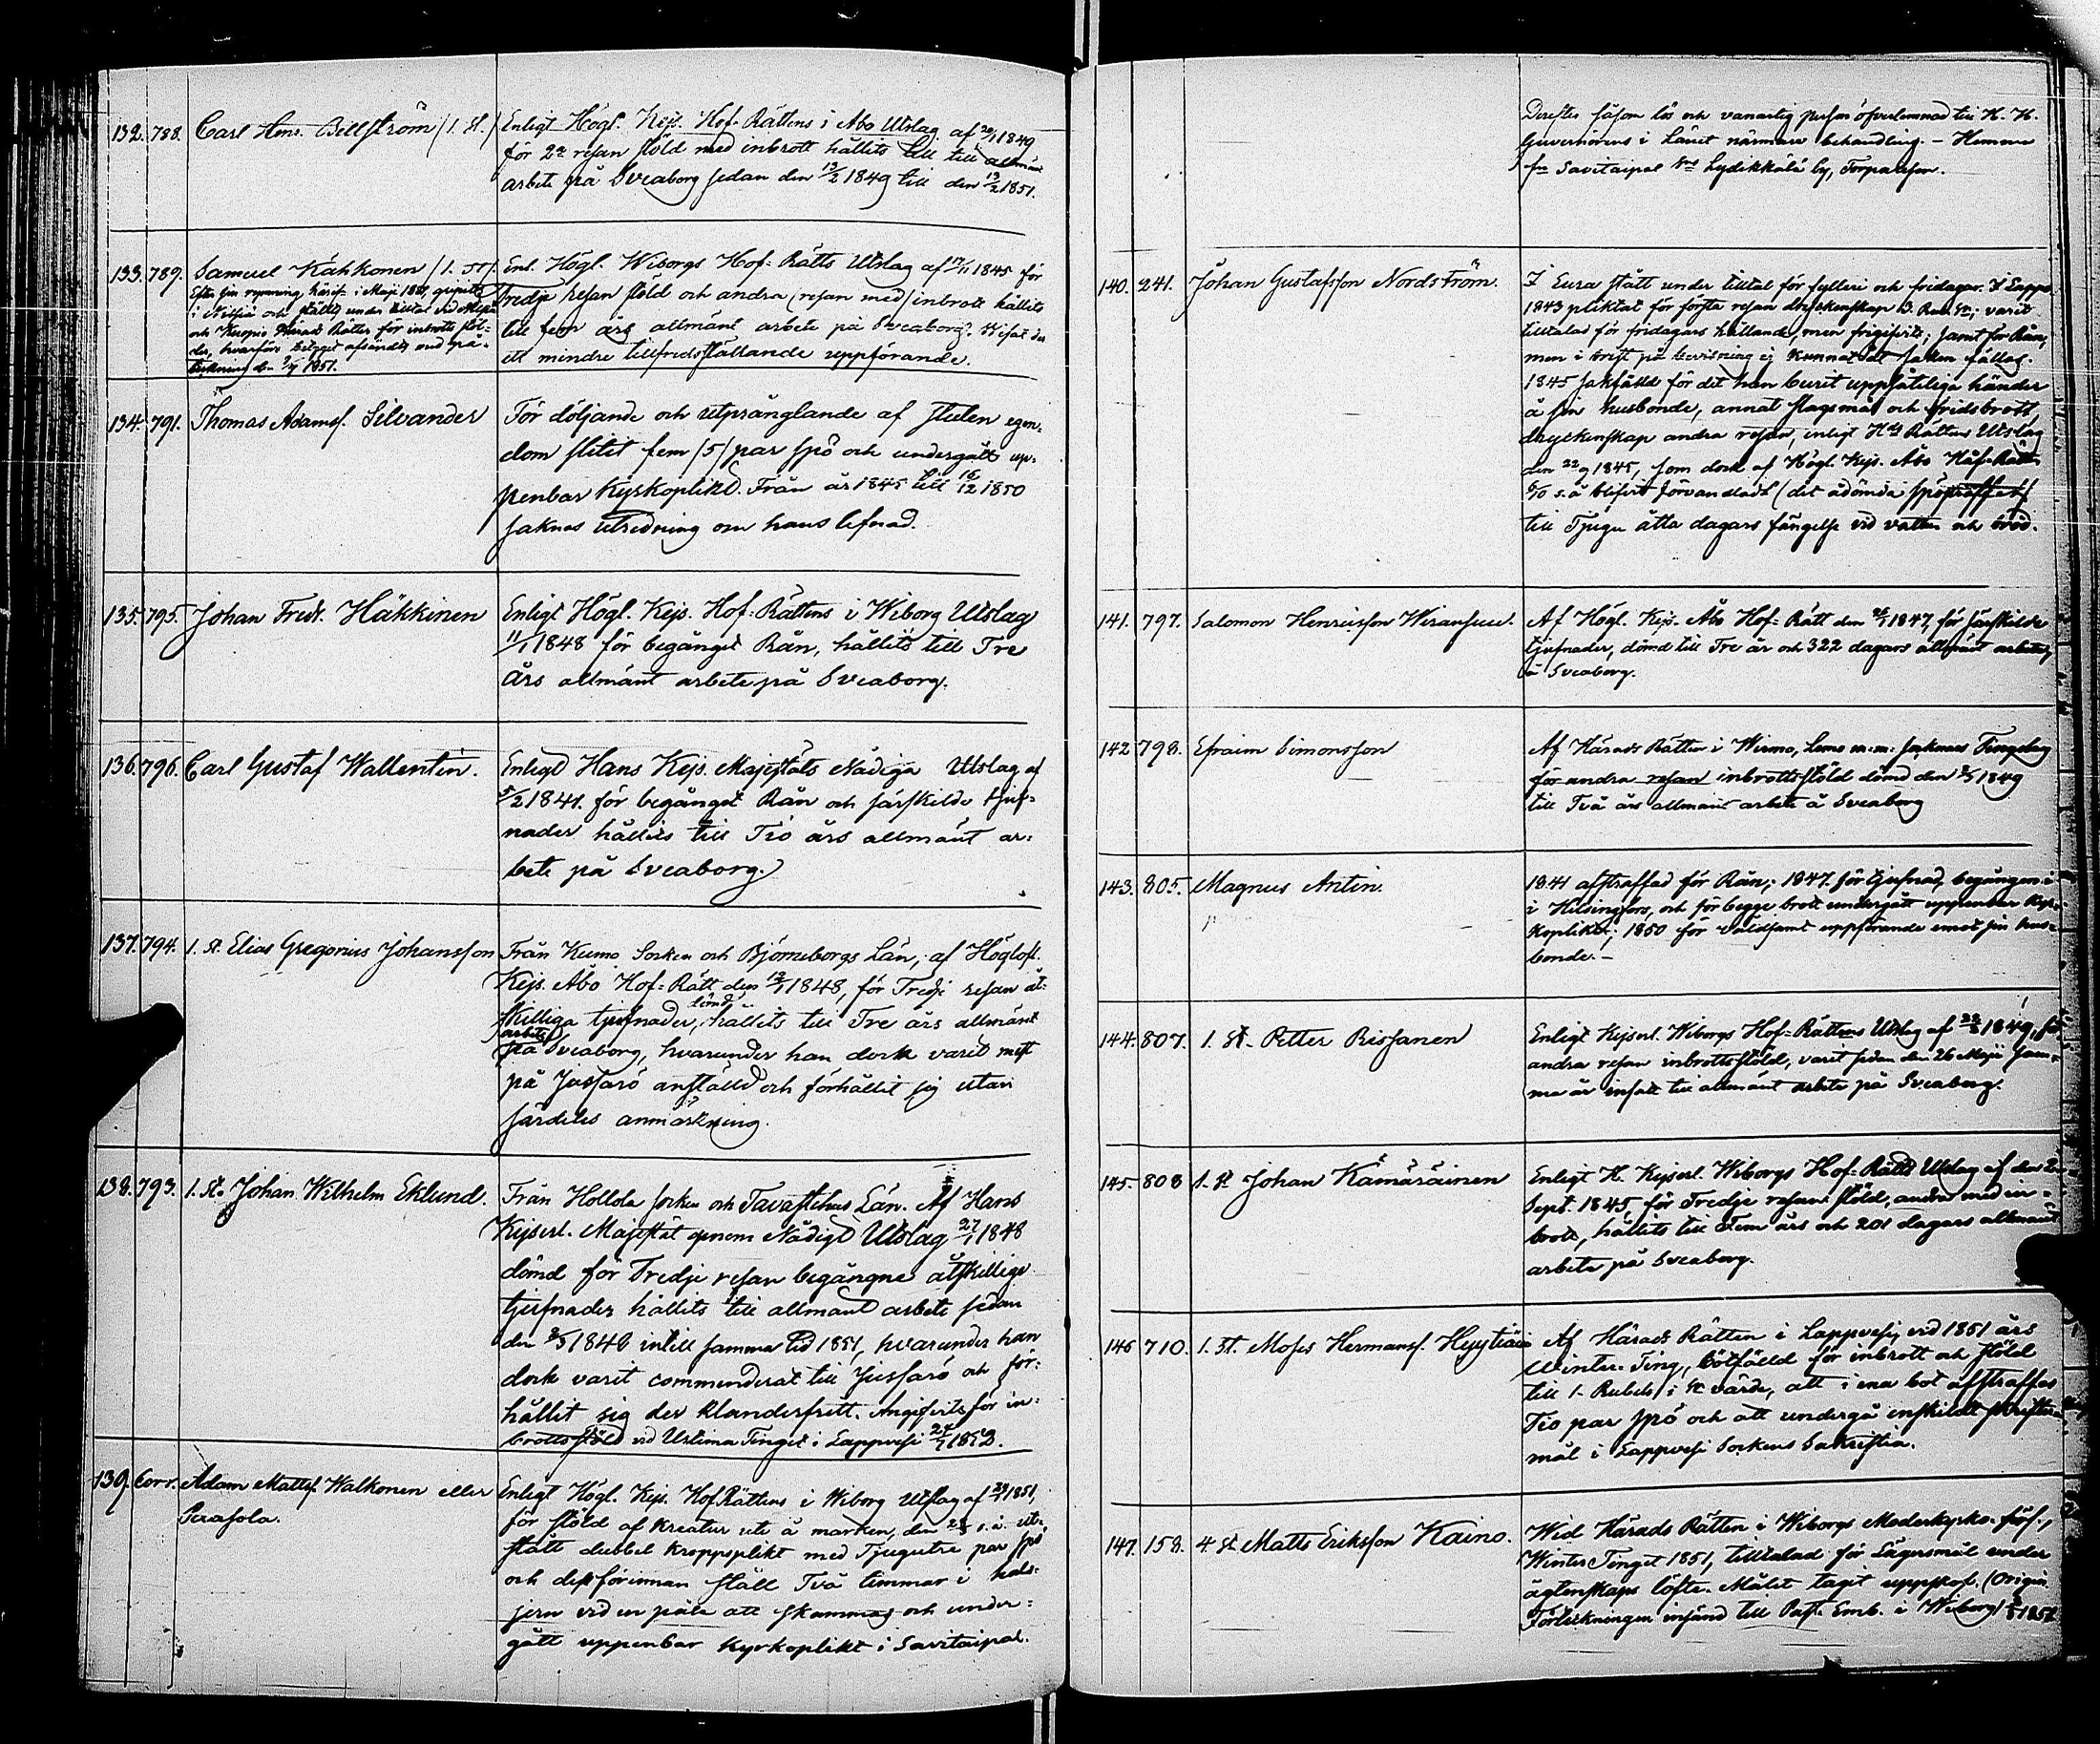 132. 788. Carl Hinr. Billström /1. St./ Enligt Högl. Kejs. Hof-Rättens i Åbo Utslag af 20/1 1849
för 2a resan stöld med inbrott hållits till allmänt
arbete på Sveaborg sedan den 13/2 1849 till den 13/2 1851.
133. 789. Samuel Kähkonen /1. St/.
Efter sin rymning härif. i Maji 1851, gripits
i Nilsiä och ställts under tilltal vid Nilsiä
och Kuopio Härads Rätter för inbrotts stöl-
der, hvarföre betyget afsändts med på-
teckning d. 1851.
Enl. Högl. Wiborgs Hof-Rätts Utslag af 17/11 1845 för
Tredje resan stöld och andra (resan med) inbrott hållits
till fem års allmänt arbete på Sveaborg. Wisat der
ett mindre tillfredsställande uppförande.
134. 791. Thomas Adamsf. Silvander För döljande och utprånglande af stulen egen-
dom slitit fem /5/ par spö och undergått up-
penbar Kyrkoplikt. Från år 1845 till 16/12 1850
saknas utredning om hans lefnad.
135. 795. Johan Fredr. Häkkinen Enligt Högl. Kejs. Hof-Rättens i Wiborg Utslag
11/1 1848 för begånget Rån, hållits till Tre
Års allmänt arbete på Sveaborg.
136. 796. Carl Gustaf Wallentin. Enligt Hans Kejs. Majestäts Nådiga Utslag af
5/2 1841. för begånget Rån och särskilde tjuf-
nader hållits till Tio års allmänt ar-
bete på Sveaborg.
137. 794. 1. St. Elias Gregorius Johansson Från Kumo Socken och Björneborgs Län, af Höglofl.
Kejs. Åbo Hof-Rätt den 12/1 1848, för Tredje resan åt-
skilliga tjufnader, dömd hållits till Tre års allmänt
arbete på Sveaborg, hvarunder han dock varit mest
på Jussarö anställd och förhållit sig utan
särdeles anmärkning.
138. 793. 1. St. Johan Wilhelm Eklund. Från Hollola socken och Tavastehus Län. Af Hans
Kejserl. Majestät genom Nådigt Utslag 27/1 1848
dömd för Tredje resan begångne åtskillige
tjufnader hållits till allmänt arbete sedan
den 3/3 1848 intill samma tid 1851, hvarunder han
dock varit commenderat till Jussarö och för-
hållit sig der klanderfritt. Angifvits för in-
brottsstöld vid Urtima Tinget i Lappvesi 1852.
139. Corr. Adam Mattsf. Walkonen eller
Perasola.
Enligt Högl. Kejs. Hof Rättens i Wiborg Utslag af 1851,
för stöld af kreatur ute å marken, den s. å. ut-
stått dubbel kroppsplikt med Tjugutre par spö
och dessförinnan stått Två timmar i hals-
jern vid en påle att skämmas och under-
gått uppenbar kyrkoplikt i Savitaipal.
Derefter såsom lös och vanartig person öfverlemnad till H. H.
Guvernörens i Länet närmare behandling. – Hemma
fr. Savitaipal Sns Lydikkälä by, Torpareson.
140. 241. Johan Gustafsson Nordström. I Eura stått under tilltal för fylleri och fridagar. I Lappo
1843 pliktat för första resan dryckenskap 3. Rub. Sr; varit
tilltalad för fridagars hållande, men frigifvits; samt för Rån,
men i brist på bevisning ej kunnat till saken fällas.
1845 sakfälld för det han burit uppsåteliga händer
å sin husbonde, annat slagsmål och fridsbrott,
dryckenskap andra resan, enligt Hds Rättens Utslag
den 22/9 1845, som dock af Högl. Kejs. Åbo Håf-Rätt
6/10 s. å. blifvit förvandladt (det ådömda spöstraffet)
till Tjugu åtta dagars fängelse vid vatten och bröd.
141. 797. Salomon Henriksson Wiransuu. Af Högl. Kejs. Åbo Hof-Rätt den 1847, för särskilda
tjufnader, dömd till Tre år och 322 dagars allmänt arbete
å Sveaborg.
142. 798. Efraim Simonsson Af Härads Rätten i Wirmo, Lemo m.m: socknars Tingslag
för andra resan inbrottsstöld dömd den 1849
till Två års allmänt arbete å Sveaborg
143. 805. Magnus Antin. 1841 afstraffad för Rån; 1847. för tjufnad, begången
i Helsingfors, och för begge brott undergått uppenbar Kyr-
koplikt; 1850 för våldsamt uppförande emot sin hus-
bonde. –
144. 807. 1. St. Petter Rissanen Enligt Kejserl. Wiborgs Hof-Rättens Utslag af 1849, för
andra resan inbrottsstöld, varit sedan den 26 Maji sam-
ma år insatt till allmänt arbete på Sveaborg.
145. 808 1. St Johan Kämäräinen Enligt K. Kejserl. Wiborgs Hof-Rätts Utslag af den 2
Sept. 1845, för Tredje resan stöld, andra med in-
brott, hållits till Fem års och 201 dagars allmänt
arbete på Sveaborg.
146 710. 1. St. Moses Hermansf. Hyytiäin Af Härads Rätten i Lappvesi vid 1851 års
Winter-Ting, bötfälld för inbrott och stöld
till 1. Rubels i Sr värde, att i ena bot afstraffas
Tio par spö och att undergå enskildt skrifter-
mål i Lappvesi Sockens Sakristia.
147. 158. 4 St Matts Eriksson Kaino. Wid Härads Rätten i Wiborgs Moderkyrko-förs.,
Winter Tinget 1851, tilltalad för Lägersmål under
ägtenskaps löfte. Målet taget uppskof. (Origin.
Förteckningen insänd till Past. Emb. i Wiborg 1851